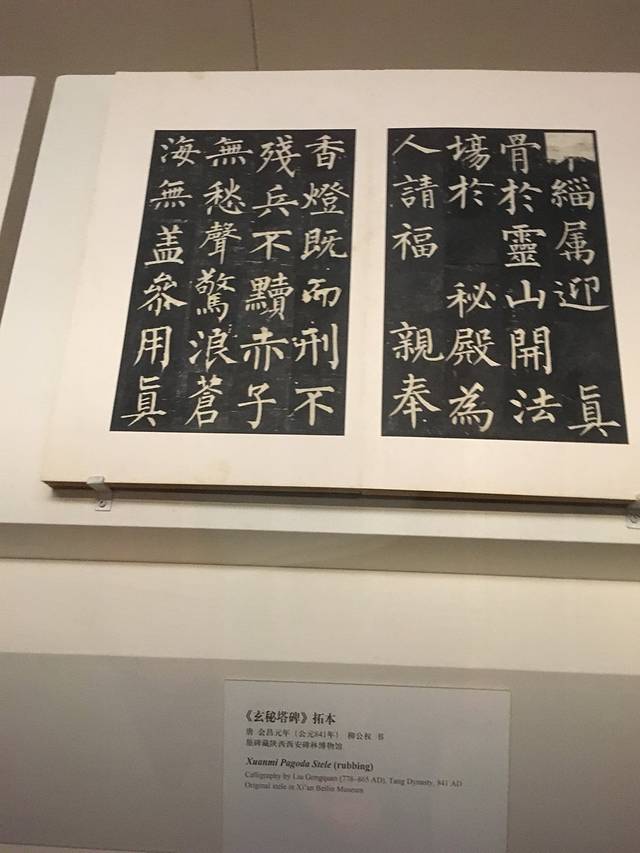 緇属迎 眞
骨於靈山開法
塲於 秘殿為
人請福 親奉
香燈既而刑不
殘兵不黷赤子
無愁聲驚浪蒼
海無盖叅用眞
《玄秘塔碑》拓本
唐 会昌元年（公元841年） 柳公权 书
原碑藏陕西西安碑林博物馆
Xuanmi Pagoda Stele (rubbing)
Calligraphy by Liu Gongquan (778–865 AD), Tang Dynasty, 841 AD
Original stele in Xi'an Beilin Museum